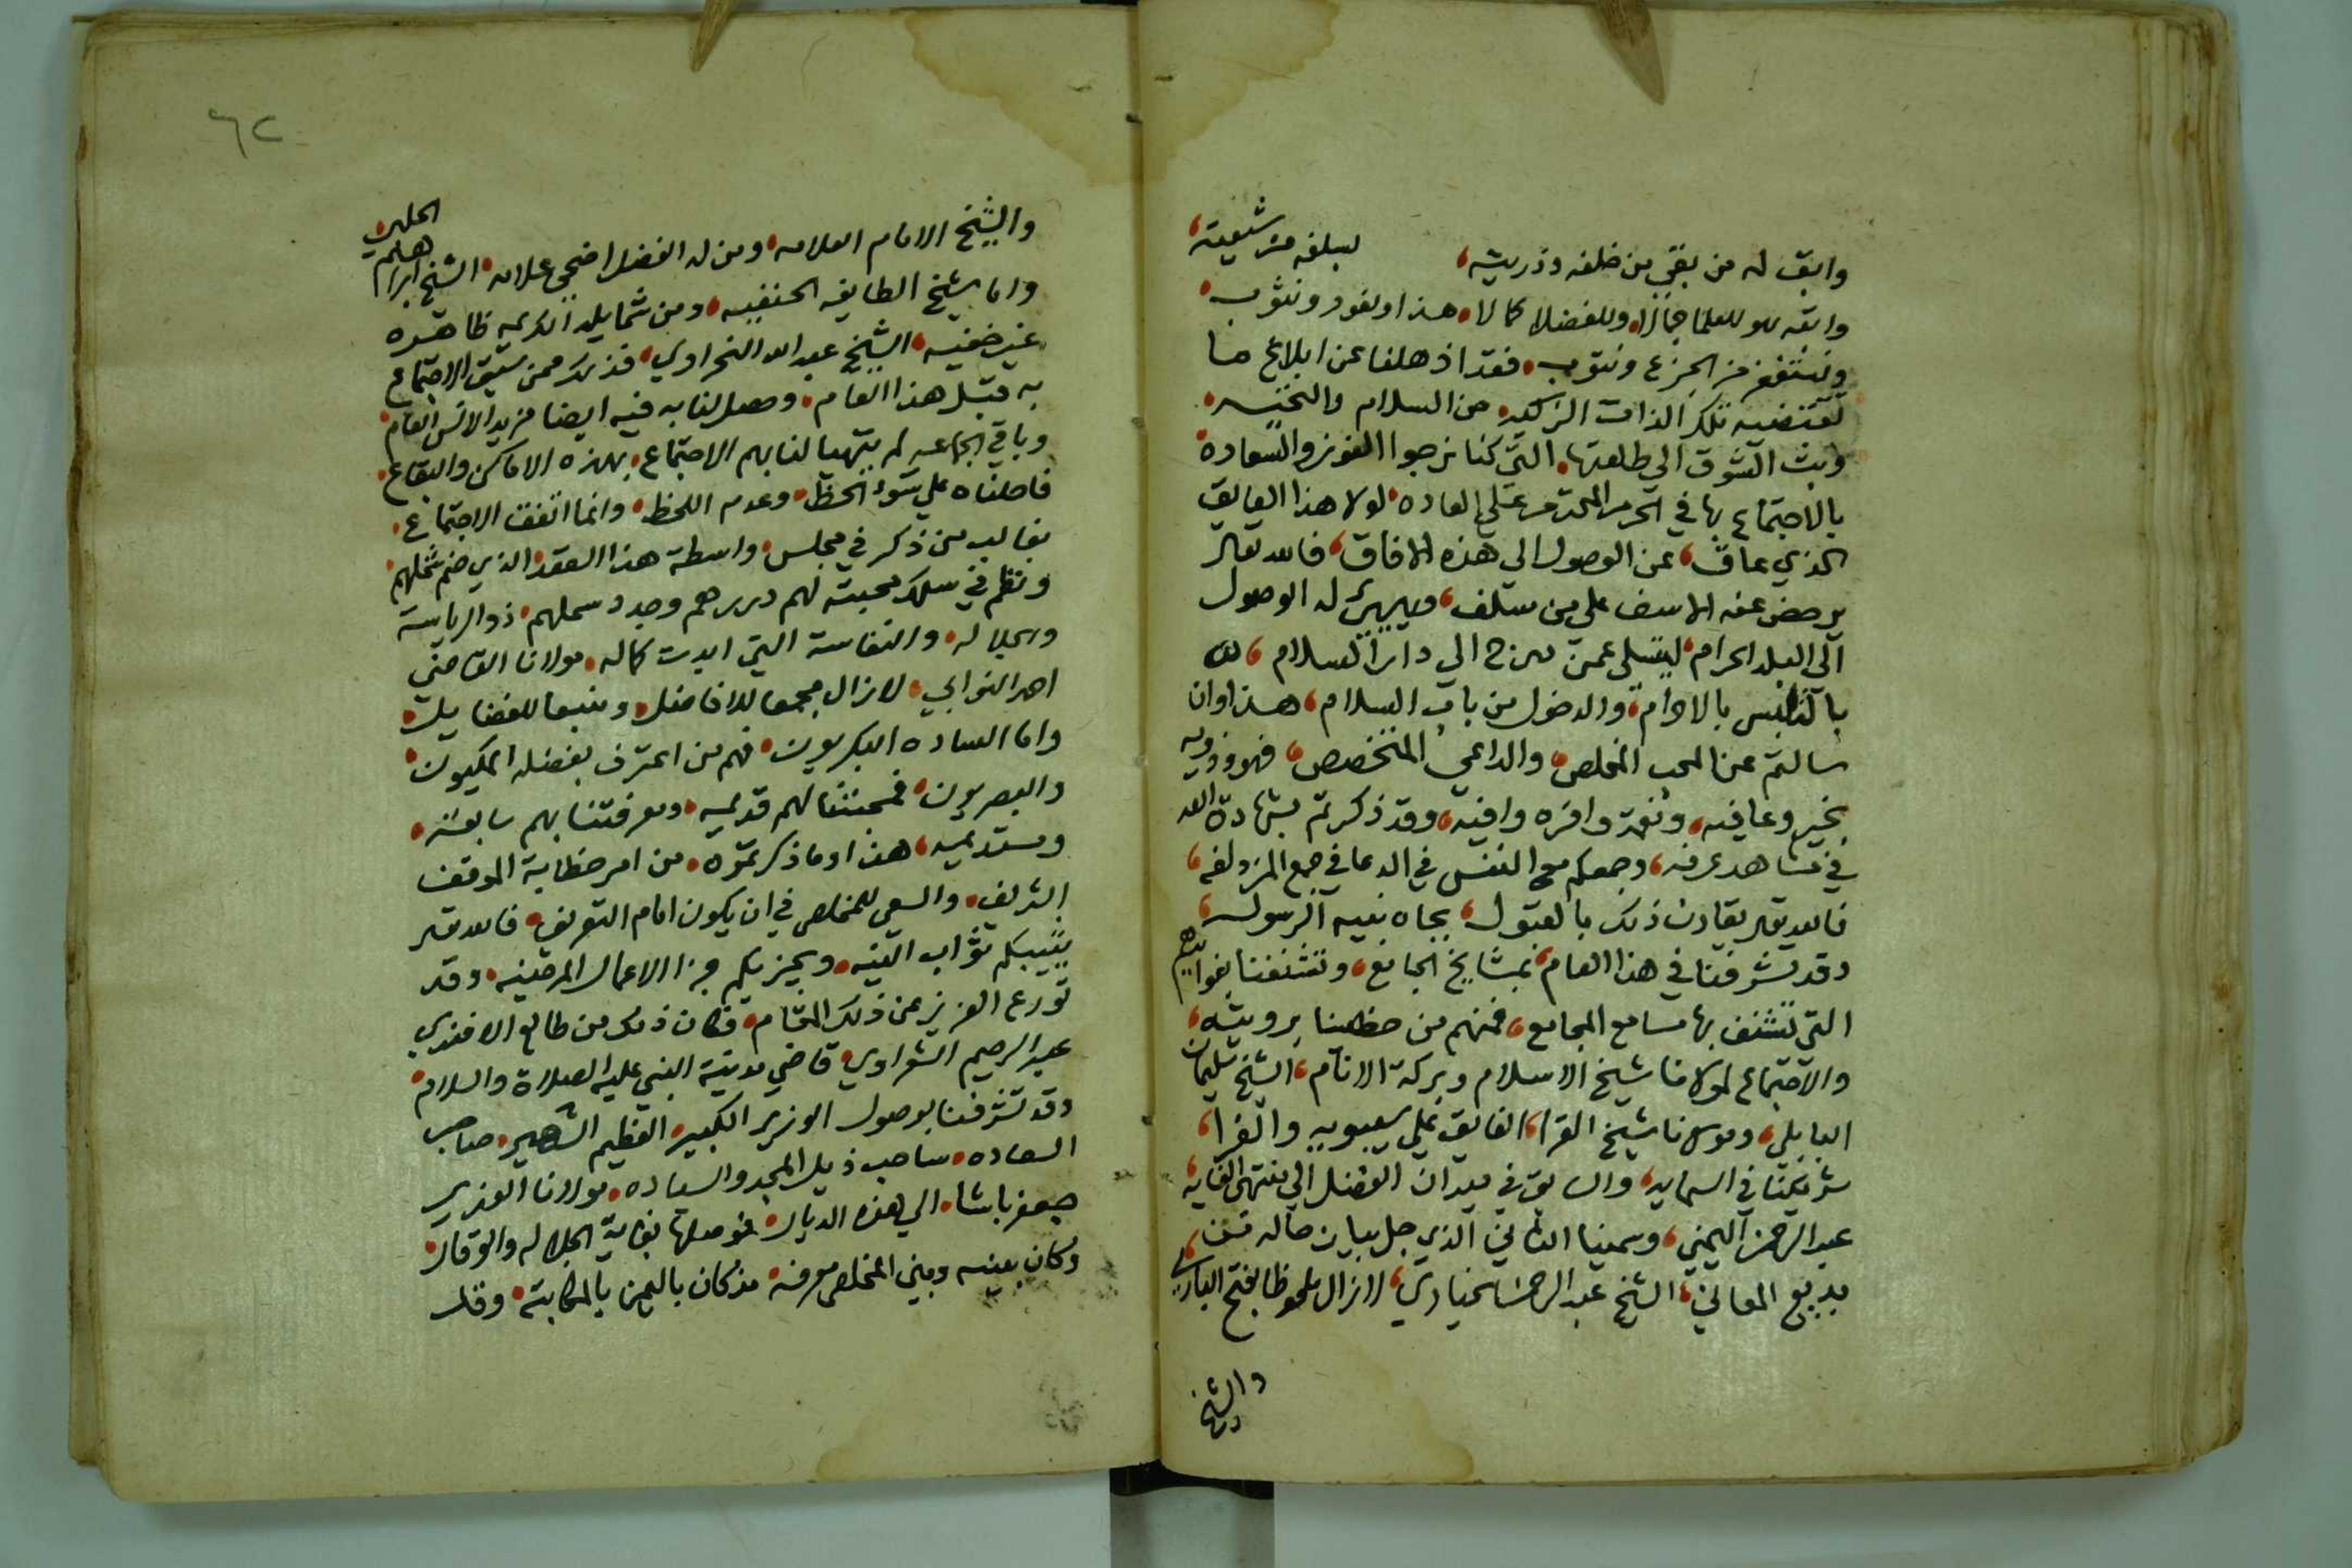 وابق له من بقي من خلفه وذريته، ليبلغ من شيعته،
وابقه للعلما جمالا، وللفضلا كمالا، هذا ونعود ونثوب،
ونستغفر من الجزع ونتوب، فقد اذهلنا عن ابلاغ ما
تقتضيه تلك الذات الزكيه، من السلام والتحيه،
وبث الشوق الي طلعتها، التي كنا نرجوا الفوز والسعاده
بالاجتماع بها في الحرم المحترم علي العاده، لولا هذا العايق
الذي عاق، عن الوصول الي هذه الافاق، فالله تعالي
يرحض عنه الاسف علي من سلف، وييسر له الوصول
الي البلد الحرام، ليتسلي عمن درج الي دار السلام،
بالتلبس بالاحرام، والدخول من باب السلام، هذا وان
سالتم عن المحب المخلص، والداعي المتخصص، فهو وذويه
بخير وعافيه، ونعم وافره وافيه، وقد ذكرتم بشهادة الله
في مشاهد عرفه، وجمعكم مع النفس في الدعا في جمع المزدلفه،
فالله يقارن ذلك بالقبول، بجاه نبيه الرسول،
وقد تشرفنا في هذا العام، بمشايخ الجامع، وتشنفنا بفوايدهم
التي تشنف بها مسامع المجامع، فمنهم من حظينا برويته،
والاجتماع مولانا شيخ الاسلام وبركة الانام، الشيخ سليمان
البابلي، ومولانا شيخ القرا، الفايق علي سيبويه والفرا،
شريكنا في السمايه، والسابق في ميدان الفضل الي منتهي الغايه،
عبد الرحمن اليمني، وسمينا الثاني الذي جل بيان حاله عن
بديع المعاني، الشيخ عبد الرحمن الخياري، لازال ملحوظا بفتح الباري،
والشيخ
والشيخ الامام العلامه، ومن له الفضل اضحي علامه، الشيخ ابراهيم الحلبي،
واما شيخ الطايفه الحنفيه، ومن شمايله الكريمه ظاهره
غير خفيه، الشيخ عبد الله النحراوي، فذلك ممن سبق الاجتماع
به قبل هذا العام، وحصل لنا به فيه ايضا مزيد الانس العام،
وباقي الجماعه لم يتهيا لنا بهم الاجتماع، بهذه الاماكن والبقاع،
فاحلناه علي سوء الحظ، وعدم اللحظ، وانما اتفق الاجتماع،
بغالب من ذكر في مجلس، واسطة هذا العقد، الذي ضم شملهم،
ونظم في سلك محبته لهم دررهم وجدد شملهم، ذو الرياسة
والجلاله، والنفاسة التي ابدت كماله، مولانا القاضي
احمد النوابي، لازال مجمعا للافاضل، ومنبعا للفضايل،
واما الساده البكريون، فهم من اعترف بفضله المكيون،
والبصريون، فمحبتنا لهم قديمه، ومعرفتنا بهم سابقه،
ومستديمه، هذا وما ذكرتموه، من امر خطابة الموقف
الشريف، والسعي للمخلص في ان يكون امام التعريف، فالله
يثيبكم ثواب النيه، ويجزيكم جزا الاعمال المرضيه، وقد
تورع العزيز عن ذلك المقام، فكان ذلك من طالع الافندي
عبد الرحيم الشعراوي، قاضي مدينة النبي عليه الصلاة والسلام،
وقد تشرفنا بوصول الوزير الكبير، العظيم الشهير، صاحب
السعاده، ساحب ذيل المجد والسياده، مولانا الوزير
جعفر باشا، الي هذه الديار، فوصلها بغاية الجلاله والوقار،
وكان بينه وبين المخلص معرفه، مذ كان باليمن بالمكاتبة، وقد
٦٢